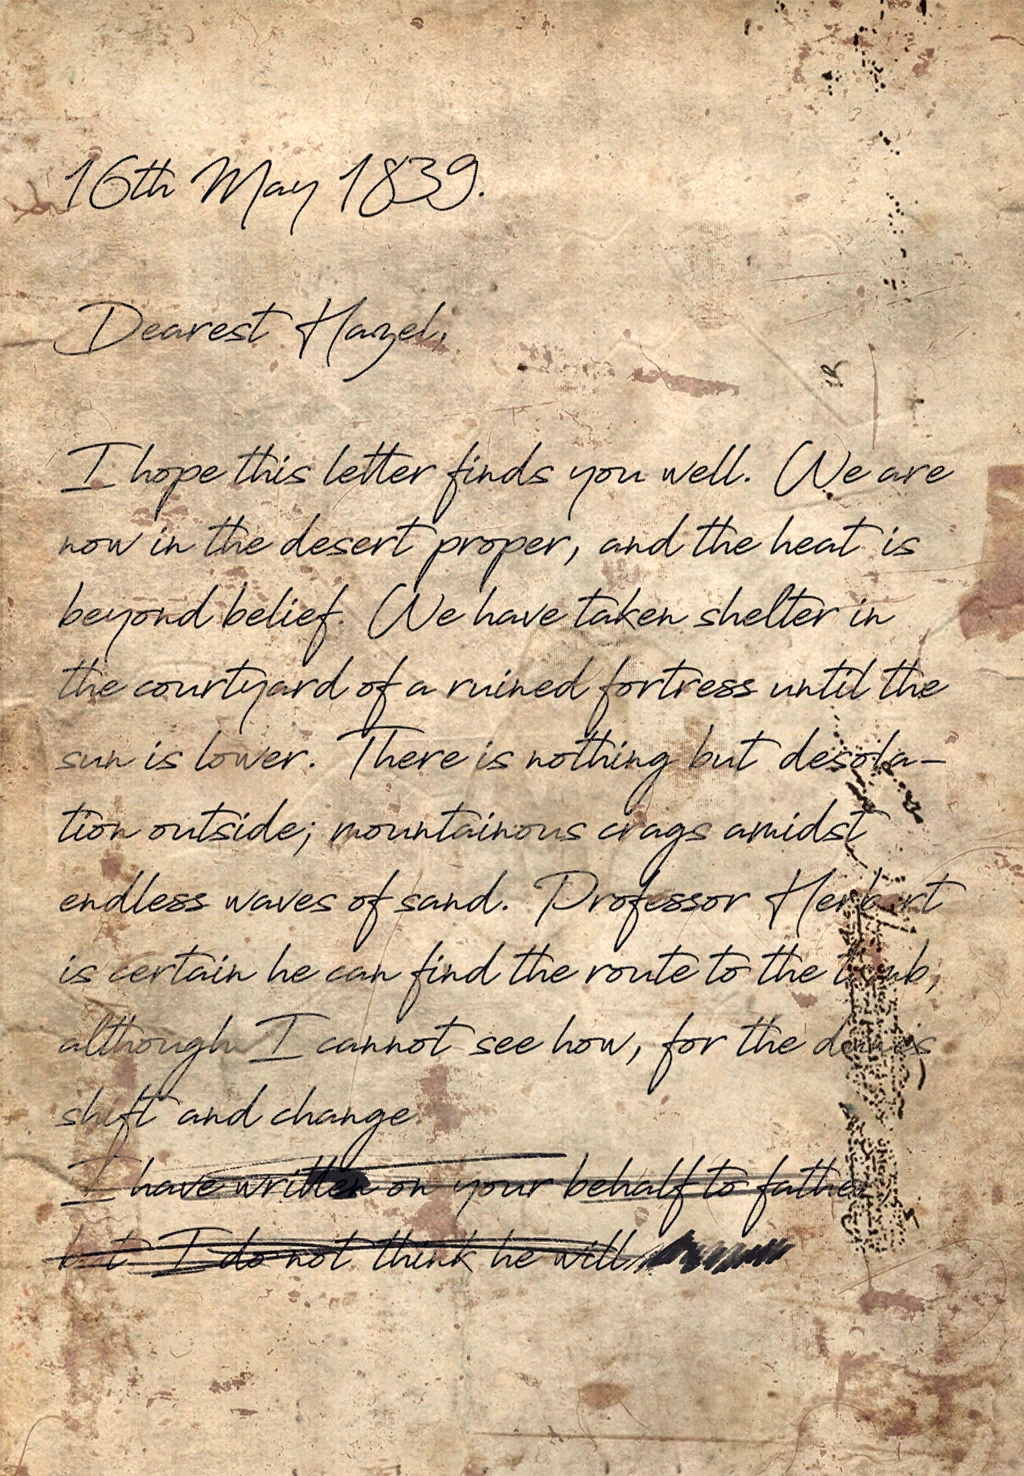 16th May 1839.
Dearest Hazel,
I hope this letter finds you well. We are
now in the desert proper, and the heat is
beyond belief. We have taken shelter in
the courtyard of a ruined fortress until the
sun is lower. There is nothing but desola-
tion outside; mountainous crags amidst
endless waves of sand. Professor Herbert
is certain he can find the route to the tomb,
although I cannot see how, for the dunes
shift and change.
I have written on your behalf to father,
but I do not think he will